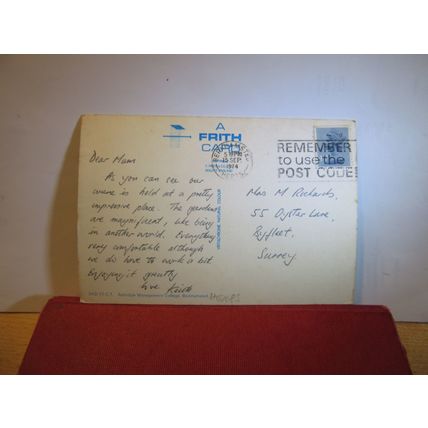 A
FRITH
CARD
5 PM
15 SEP
1974
REMEMBER
to use the
POST CODE!
Dear Mum
As you can see our
course is held at a pretty
impressive place. The gardens
are magnificent, like being
in another world. Everything
very comfortable although
we do have to work a bit.
Enjoying it greatly
love Keith
Mrs M. Richards,
55 Oyster Lane,
Byfleet,
Surrey.
Ashridge Management College, Berkhamsted
HERTS